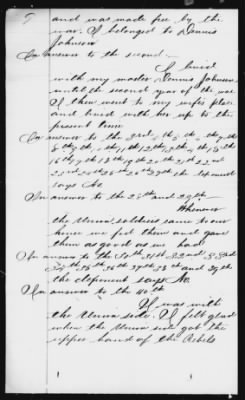 5
and was made free by the
war. I belonged to Dennis
Johnson
In answer to the second.
I lived
with my master Dennis Johnson
until the second year of the war
I then went to my wife's place
and lived with her up to the
present time
In answer to the 3rd, 4th 5th 6th 7th
8th 9th 10th 11th 12th 13th 14th 15th
16th 17th 18th 19th 20th 21st 22nd
23rd 24th 25th 26th 27th the deponent
says No
In answer to the 28th and 29th
Whenever
the Union soldiers came to our
house we fed them and gave
them as good as we had
In answer to the 30th 31st 32nd 33rd
34th 35th 36th 37th 38th and 39th
the deponent says No.
In answer to the 40th
I was with
the Union side. I felt glad
when the Union side got the
upper hand of the Rebels